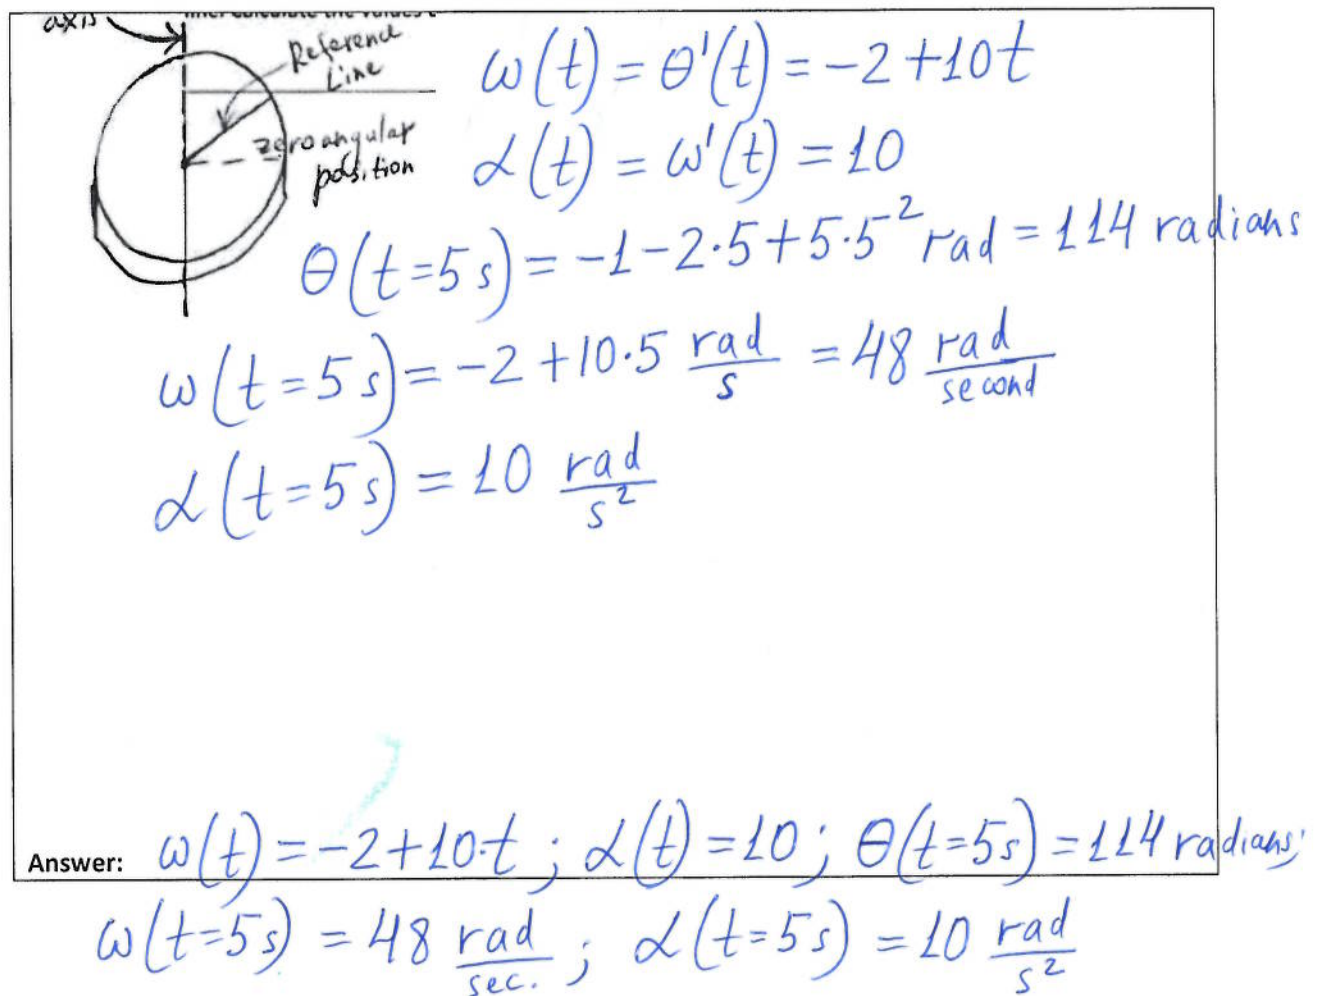 axis
Reference
Line
zero angular
position
ω(t) = θ'(t) = -2 + 10t
α(t) = ω'(t) = 10
θ(t=5s) = -1 - 2·5 + 5·5² rad = 114 radians
ω(t=5s) = -2 + 10·5 rad/s = 48 rad/second
α(t=5s) = 10 rad/s²
Answer: ω(t) = -2 + 10·t ; α(t) = 10 ; θ(t=5s) = 114 radians;
ω(t=5s) = 48 rad/sec. ; α(t=5s) = 10 rad/s²